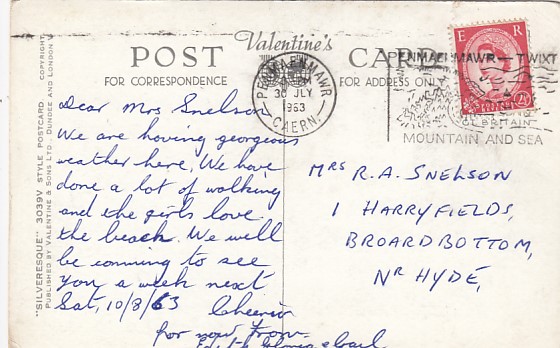 Valentine's
POST CARD
FOR CORRESPONDENCE
FOR ADDRESS ONLY
"SILVERESQUE" 3039V STYLE POSTCARD COPYRIGHT
PUBLISHED BY VALENTINE & SONS LTD., DUNDEE AND LONDON
PENMAENMAWR
30 JLY
1963
CAERN.
PENMAENMAWR — TWIXT
MOUNTAIN AND SEA
E R
2½D
Dear Mrs Snelson
We are having georgeous
weather here, We have
done a lot of walking
and the girls love
the beach. We will
be comming to see
you a week next
Sat, 10/8/63 Cheerio
for now From
MRS R.A. SNELSON
1 HARRYFIELDS,
BROARDBOTTOM,
NR HYDE,